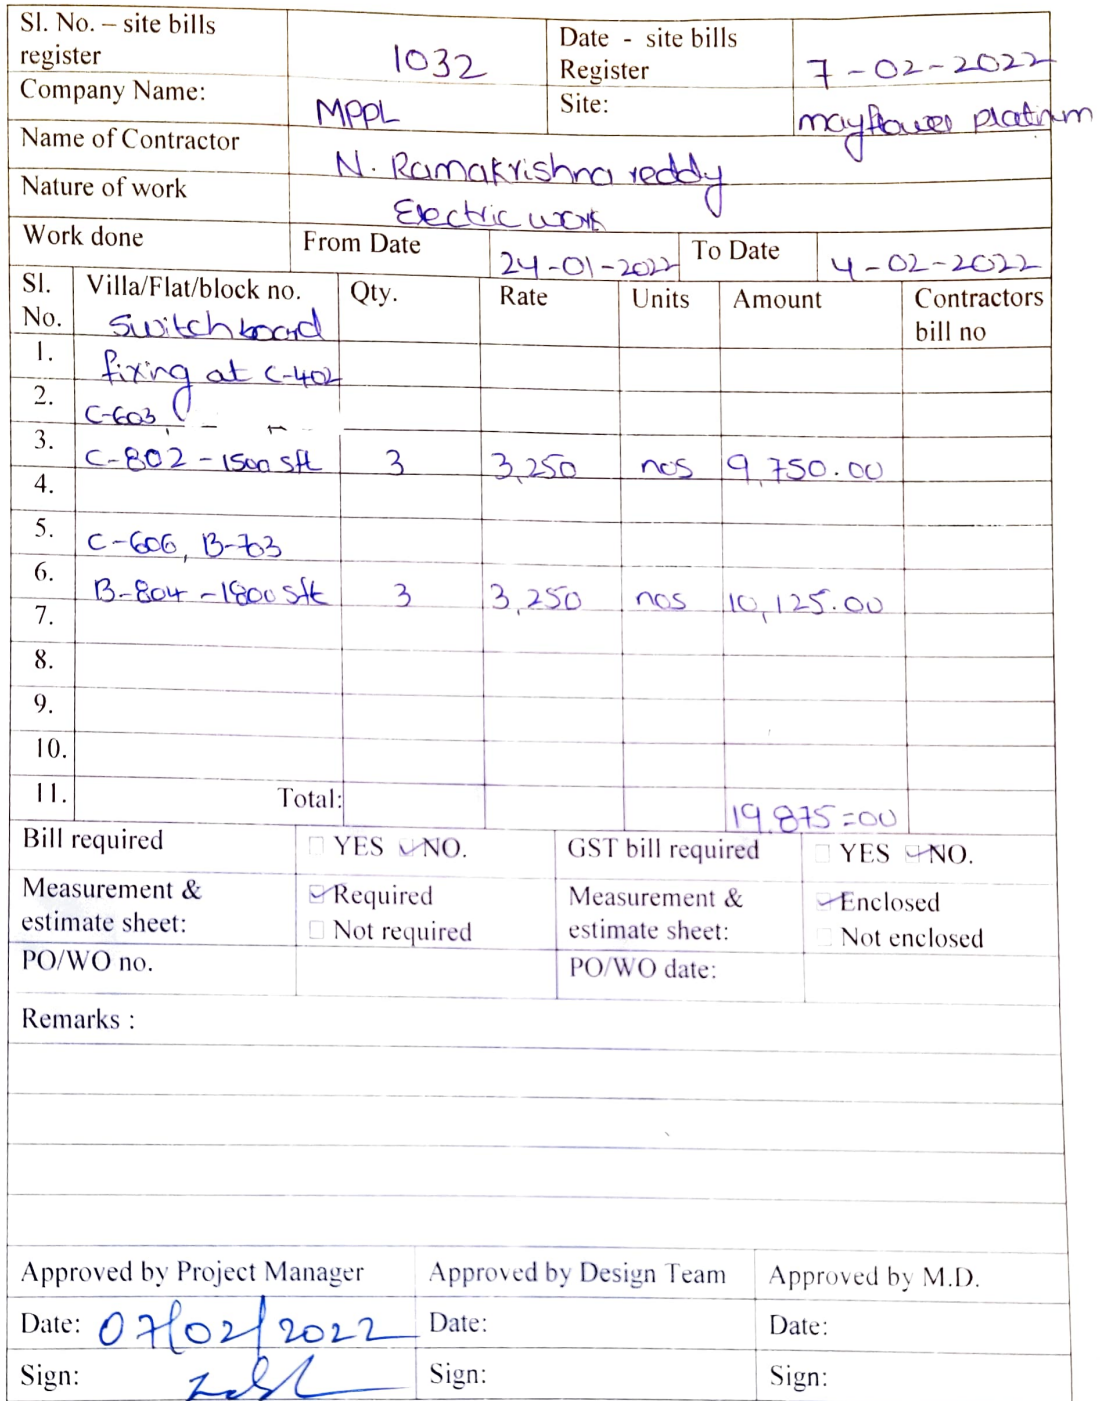 Sl. No. – site bills register 1032 Date - site bills Register 7-02-2022
Company Name: MPPL Site: mayflower platinum
Name of Contractor N. Ramakrishna reddy
Nature of work Electric work
Work done From Date 24-01-2022 To Date 4-02-2022
Sl. No. Villa/Flat/block no. Qty. Rate Units Amount Contractors bill no
Switch board
1. fixing at C-402
2. C-603
3. C-802 - 1500 sft 3 3,250 nos 9,750.00
4.
5. C-606, B-703
6. B-804 - 1800 sft 3 3,250 nos 10,125.00
7.
8.
9.
10.
11. Total: 19.875=00
Bill required YES NO. GST bill required YES NO.
Measurement & estimate sheet: Required Measurement & estimate sheet: Enclosed
Not required Not enclosed
PO/WO no. PO/WO date:
Remarks :
Approved by Project Manager Approved by Design Team Approved by M.D.
Date: 07/02/2022 Date: Date:
Sign: Sign: Sign: